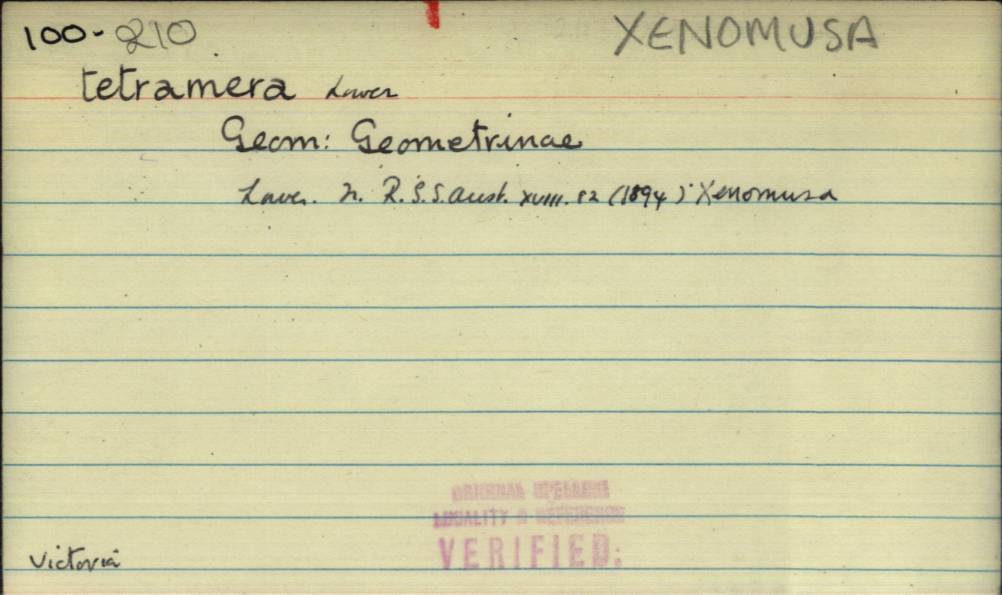 100-210 XENOMUSA
tetramera Lower
Geom: Geometrinae
Lower. n. R.S.S.Aust. XVIII. 82 (1894) Xenomusa
ORIGINAL SPELLING
LOCALITY & REFERENCE
VERIFIED:
Victoria